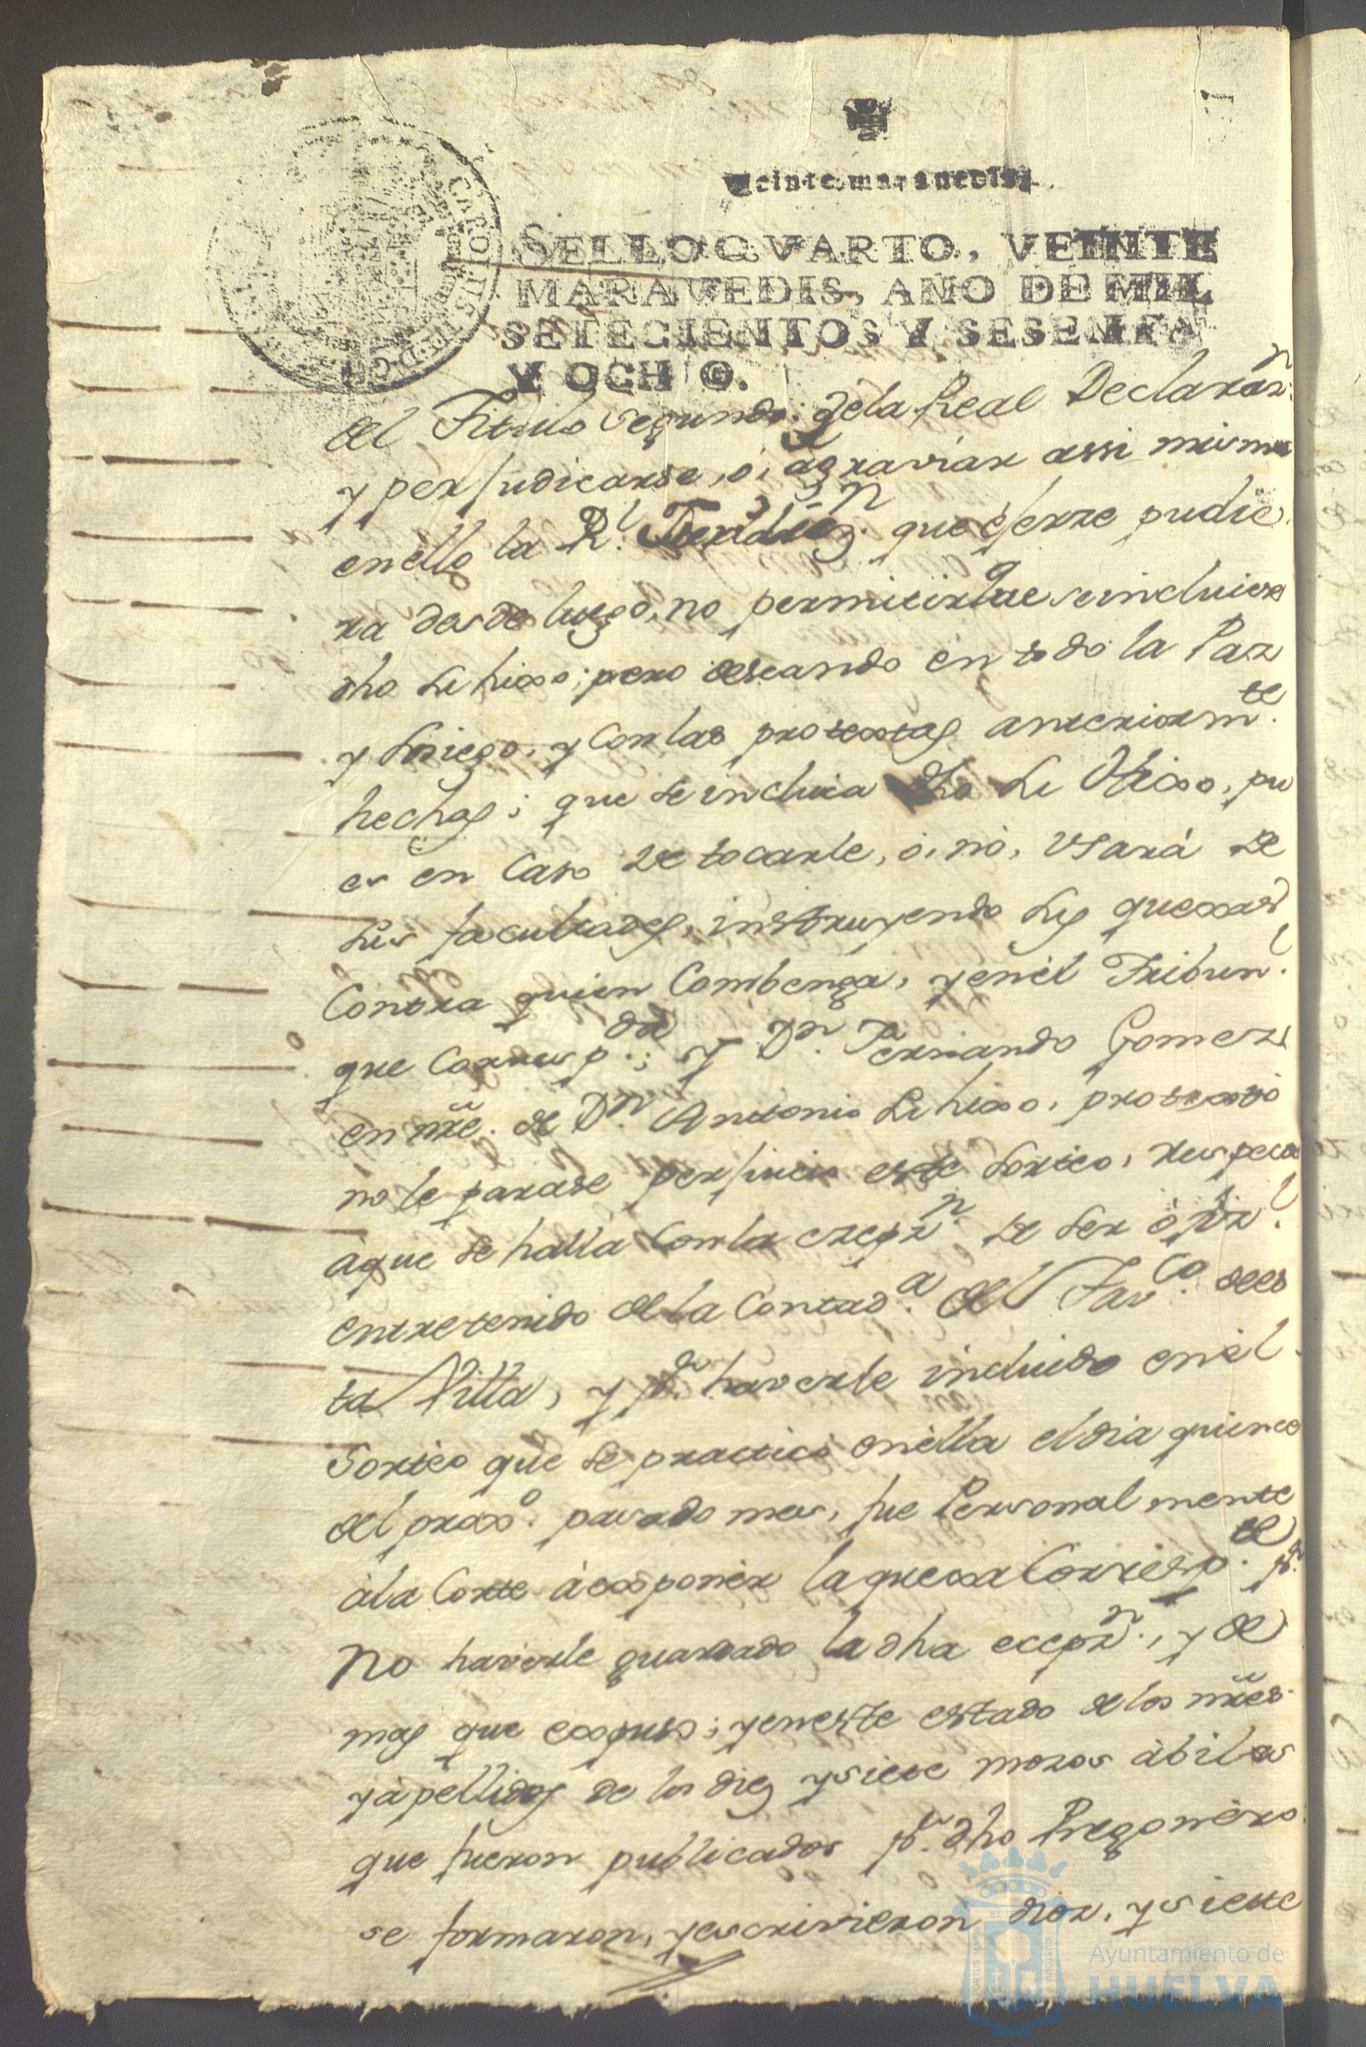 Veinte maravedis.
SELLO QVARTO, VEINTE
MARAVEDIS, AÑO DE MIL
SETECIENTOS Y SESENTA
Y OCHO.
CAROLUS III D G
del Titulo segundo; dela Real Declaraz.n
y perjudicarse, ó, agraviar assi mismo
enèllo la R.l Jurisdiz.n que èjerze pudie
ra desde luego, no permitir que se incluiera
dho su hixo; pero deseando èn todo la Paz
y sosiego, y con las protextas anteriorm.te
hechas; que se incluia dho su Hixo, pu
es en Caso de tocarle, ó, nò, Vsará de
sus facultades, instruyendo sus quexas
Contra quien Combenga, y enèl Tribun.l
que Corresp.de; Y D.n Fernando Gomez
en nre. de D.n Antonio su hixo, protextò
no le parase perjuicio este sorteo, respecto
aque se halla con la ezepz.n de ser òfiz.l
entretenido de la Contad.a del Tav.co dees
ta Villa, y p.r haverle incluido enèl
Sortèo que se practicò enèlla el dia quince
del prox.o pasado mes, fue Personalmente
àla Corte à exponer la quexa Corresp.te p.r
No haverle guardado la dha ecepz.n, y de
mas que expuso; y eneste estado de los nres.
y àpellidos de los diez y siete mozos àbiles
que fueron publicados p.r dho Pregonèro
se formaron, y escrivieron diez, y siete
Ayuntamiento de
HUELVA